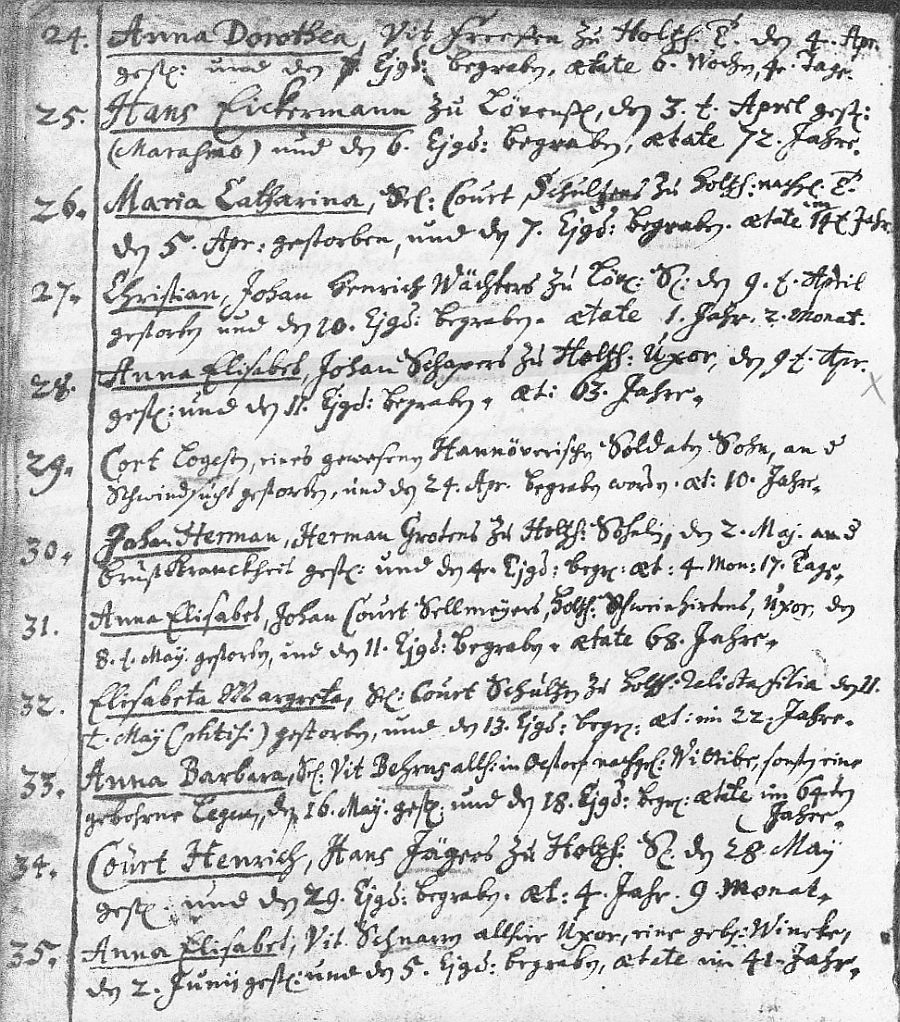 24. Anna Dorothea, Vit Freesen zu Holtzh: T. den 4. Apr.
gest: und den Ejsd: begraben, ætate 6. Wochn, 4. Tage.
25. Hans Eickermann zu Lövenst, den 3. t. April gest:
(Marasmo) und den 6. Ejsd: begraben, ætate 72. Jahre.
26. Maria Catharina, Sel: Court Schultzens zu Holtzh: nachgel: T.
den 5. Apr: gestorben, und den 7. Ejsd: begraben. ætate im 19t Jahr.
27. Christian, Johan Henrich Wächters zu Löv: S: den 9. t. April
gestorben und den 10. Ejsd: begraben. ætate 1. Jahr. 2. Monat.
28. Anna Elisabet, Johan Schapers zu Holtzh: Uxor, den 9t. Apr.
gest: und den 11. Ejsd: begraben, æt: 63. Jahre.
29. Cort Logesen, eines gewesenen Hannöverischen Soldaten Sohn, an d
Schwindsucht gestorben, und den 24. Apr. begraben worden. æt: 10. Jahre.
30. Johan Herman, Herman Grotens zu Holtzh: Söhnlein, den 2. Maj. an d
brustkranckheit gest: und den 4. Ejsd: begr: æt: 4 Mon: 17. Tage.
31. Anna Elisabet, Johan Court Sellmeyers, Holtzh: Schweinhirtens, Uxor, den
8. t. May. gestorben, und den 11. Ejsd: begraben. ætate 68. Jahre.
32. Elisabeta Margreta, Sel: Court Schultzen zu Holtzh: relicta filia den 11.
t. May (phtisi:) gestorben, und den 13. Ejsd: begr: æt: im 22. Jahre.
33. Anna Barbara, Sel: Vit Behrens alth: in Oestorf nachgel: Wittibe, sonsten eine
gebohrne Legen, den 16. May. gest: und den 18. Ejsd: begr: ætate im 64ten
Jahre.
34. Court Henrich, Hans Jägers zu Holtzh: S. den 28. May
gest: und den 29. Ejsd: begraben. æt: 4. Jahr. 9. Monat.
35. Anna Elisabet, Vit Schnarn allhie Uxor, eine geb: Wineke,
den 2. Junij gest: und den 5. Ejsd: begraben, ætate im 41. Jahr.